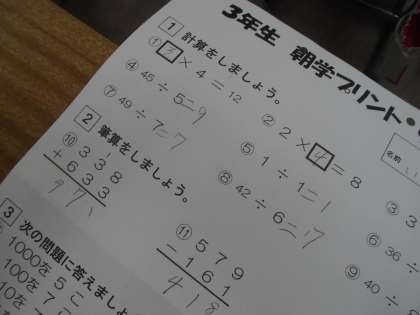 3年生 朝学プリント・
1 計算をしましょう。
① 3 × 4 = 12
② 2 × 4 = 8
③ 3
④ 45 ÷ 5 = 9
⑤ 1 ÷ 1 = 1
⑥ 36 ÷
⑦ 49 ÷ 7 = 7
⑧ 42 ÷ 6 = 7
⑨ 40 ÷
名前
2 筆算をしましょう。
⑩ 338
+ 633
971
⑪ 579
− 161
418
3 次の問題に答えましょ
1000を 5こ
100を 7こ
10を 7